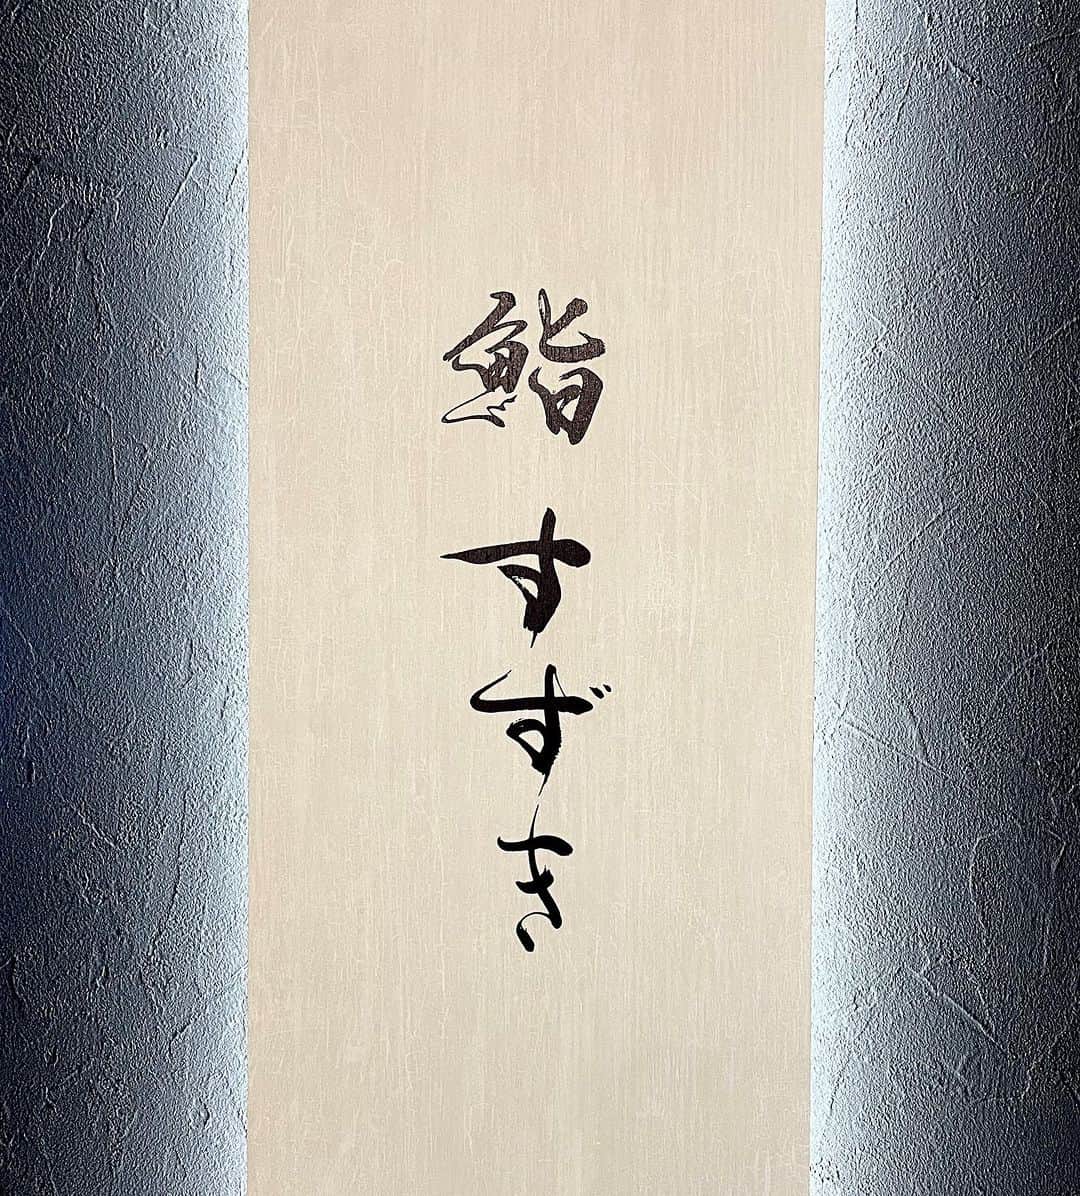 鮨 すずき